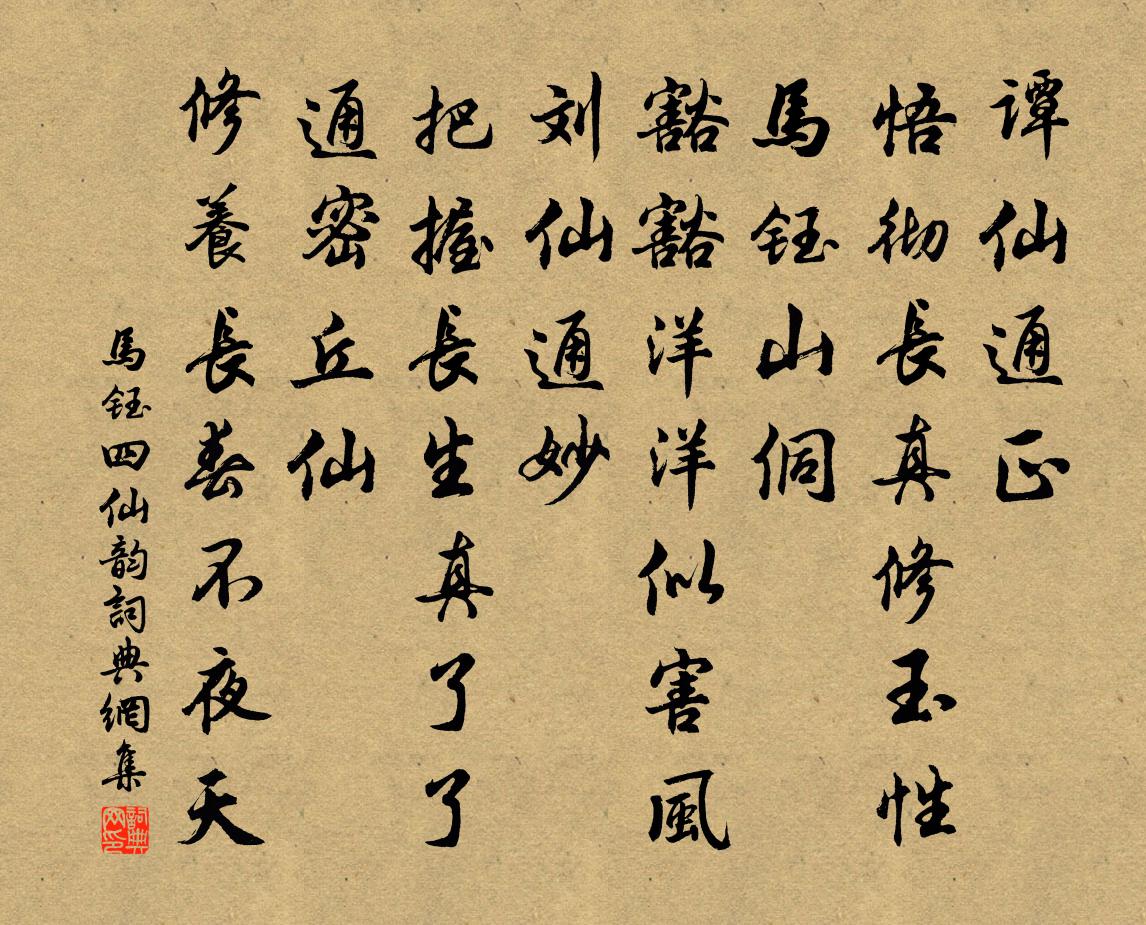 谭仙通正
悟彻長真修玉性
馬鈺山侗
豁豁洋洋似害風
刘仙通妙
把握長生真了了
通密丘仙
修養長春不夜天
馬鈺四仙韵詞典網集
詞典
网印